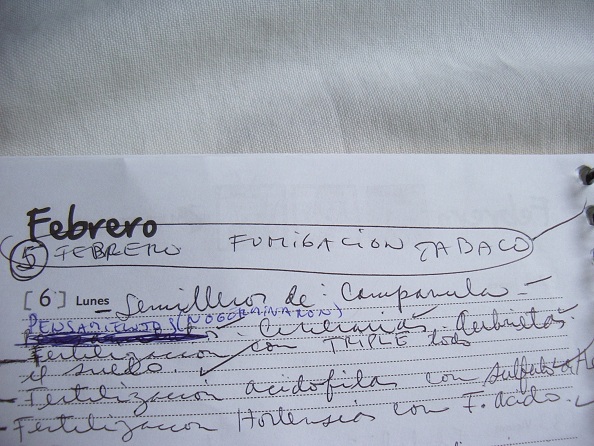 Febrero
5 FEBRERO FUMIGACION TABACO
[6] Lunes - Semilleros de: Campanula -
PENSAMIENTOS (NO GERMINARON)
: Cinerarias, Aubrietas.
Fertilización con TRIPLE todo
el suelo.
- Fertilización acidofilas con sulfato
- Fertilización Hortensias con F. acido.